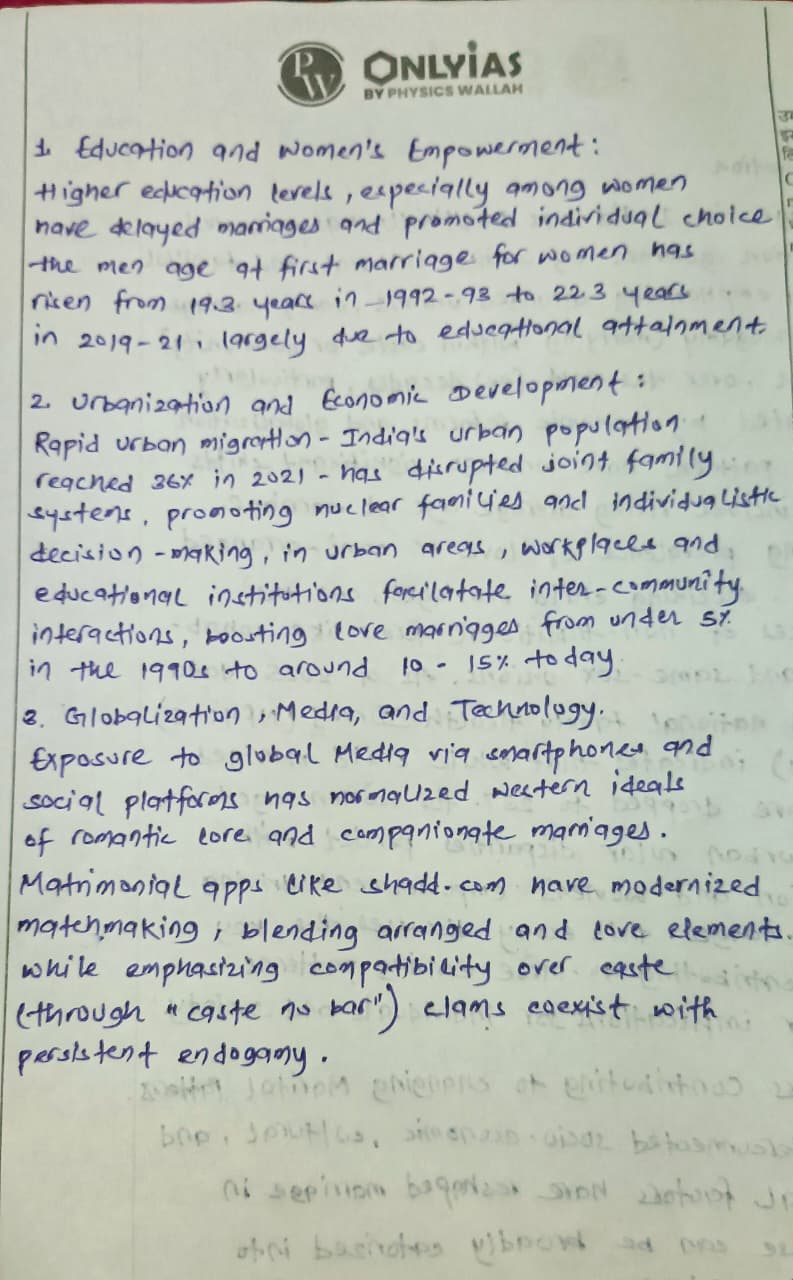 PW ONLYIAS
BY PHYSICS WALLAH
1. Education and Women's Empowerment:
Higher education levels, especially among women
have delayed marriages and promoted individual choice
the men age at first marriage for women has
risen from 19.3 years in 1992-93 to 22.3 years
in 2019-21, largely due to educational attainment.
2. Urbanization and Economic Development:
Rapid urban migration - India's urban population
reached 36% in 2021 - has disrupted joint family
systems, promoting nuclear families and individualistic
decision-making, in urban areas, workplaces and
educational institutions facilatate inter-community
interactions, boosting love marriages from under 5%
in the 1990s to around 10-15% today
3. Globalization, Media, and Technology.
Exposure to global Media via smartphones and
social platforms has normalized western ideals
of romantic love and companionate marriages.
Matrimonial apps like shadd.com have modernized
matchmaking, blending arranged and love elements.
while emphasizing compatibility over caste
(through "caste no bar") clams coexist with
persistent endogamy.